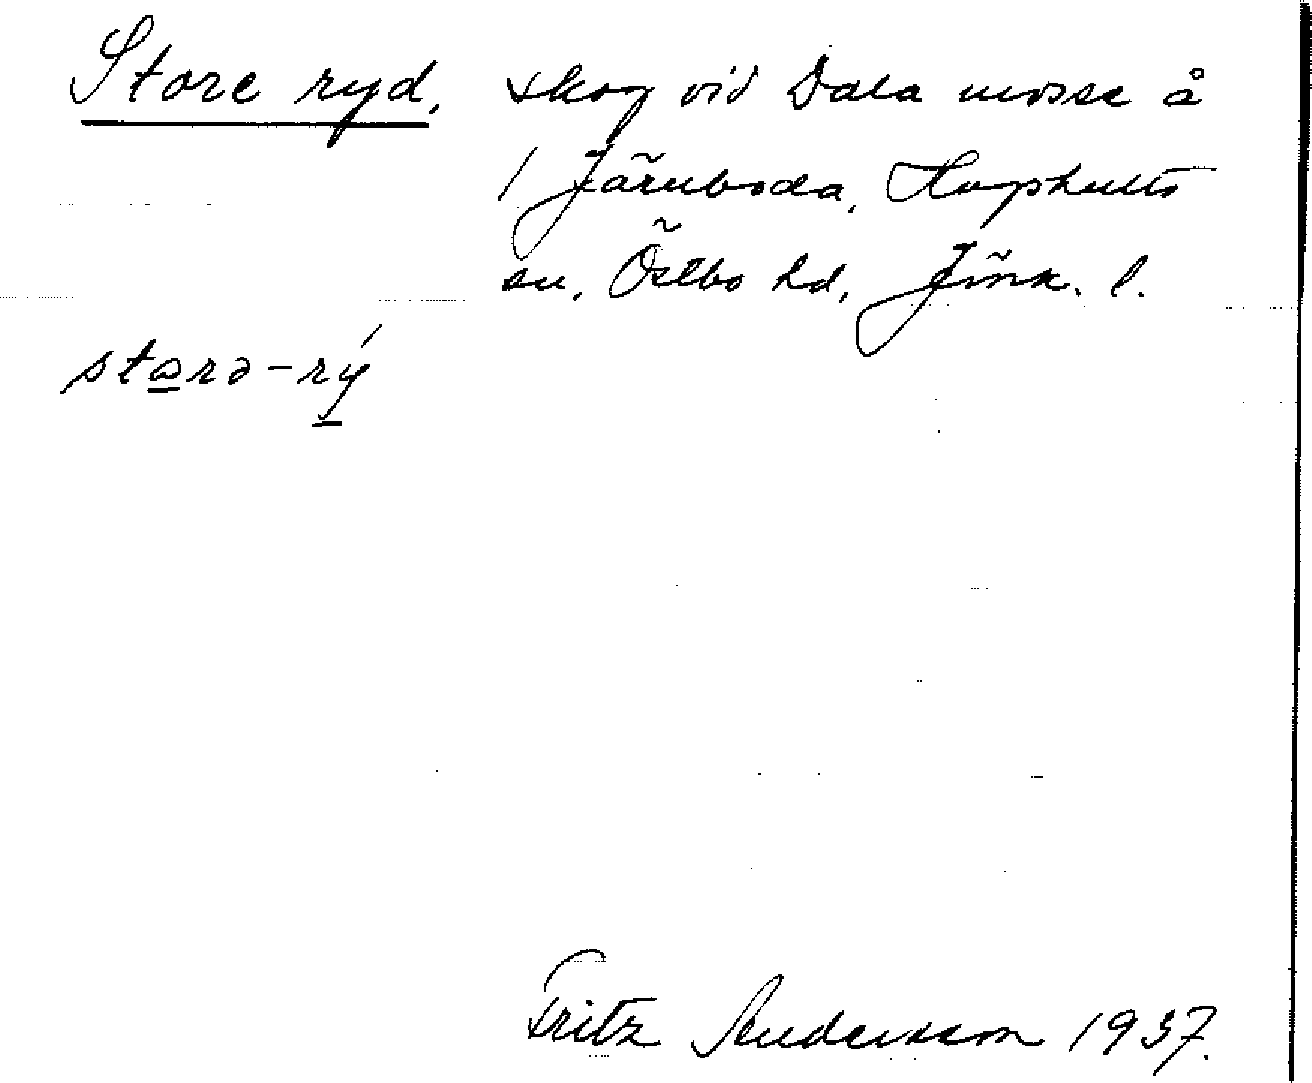 Store ryd, skog vid Dala mosse å
1 Järnboda, Hagshults
sn, Östbo hd, Jönk. l.
storə-rý
Fritz Andersson 1937.